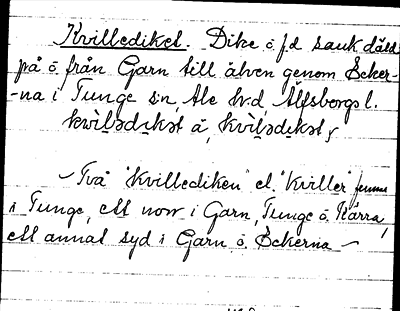 Kvillediket. Dike ö. f.d. sank däld
på ö. från Garn till älven genom Ecker-
-na i Tunge s:n, Ale h:d, Älfsborgs l.
kvìlədɩkət ä, kvìlədɩkət,
– Två "Kvillediken" el. "Kviller" finns
i Tunge, ett norr i Garn, Tunge o. Närra,
ett annat syd i Garn o. Eckerna –